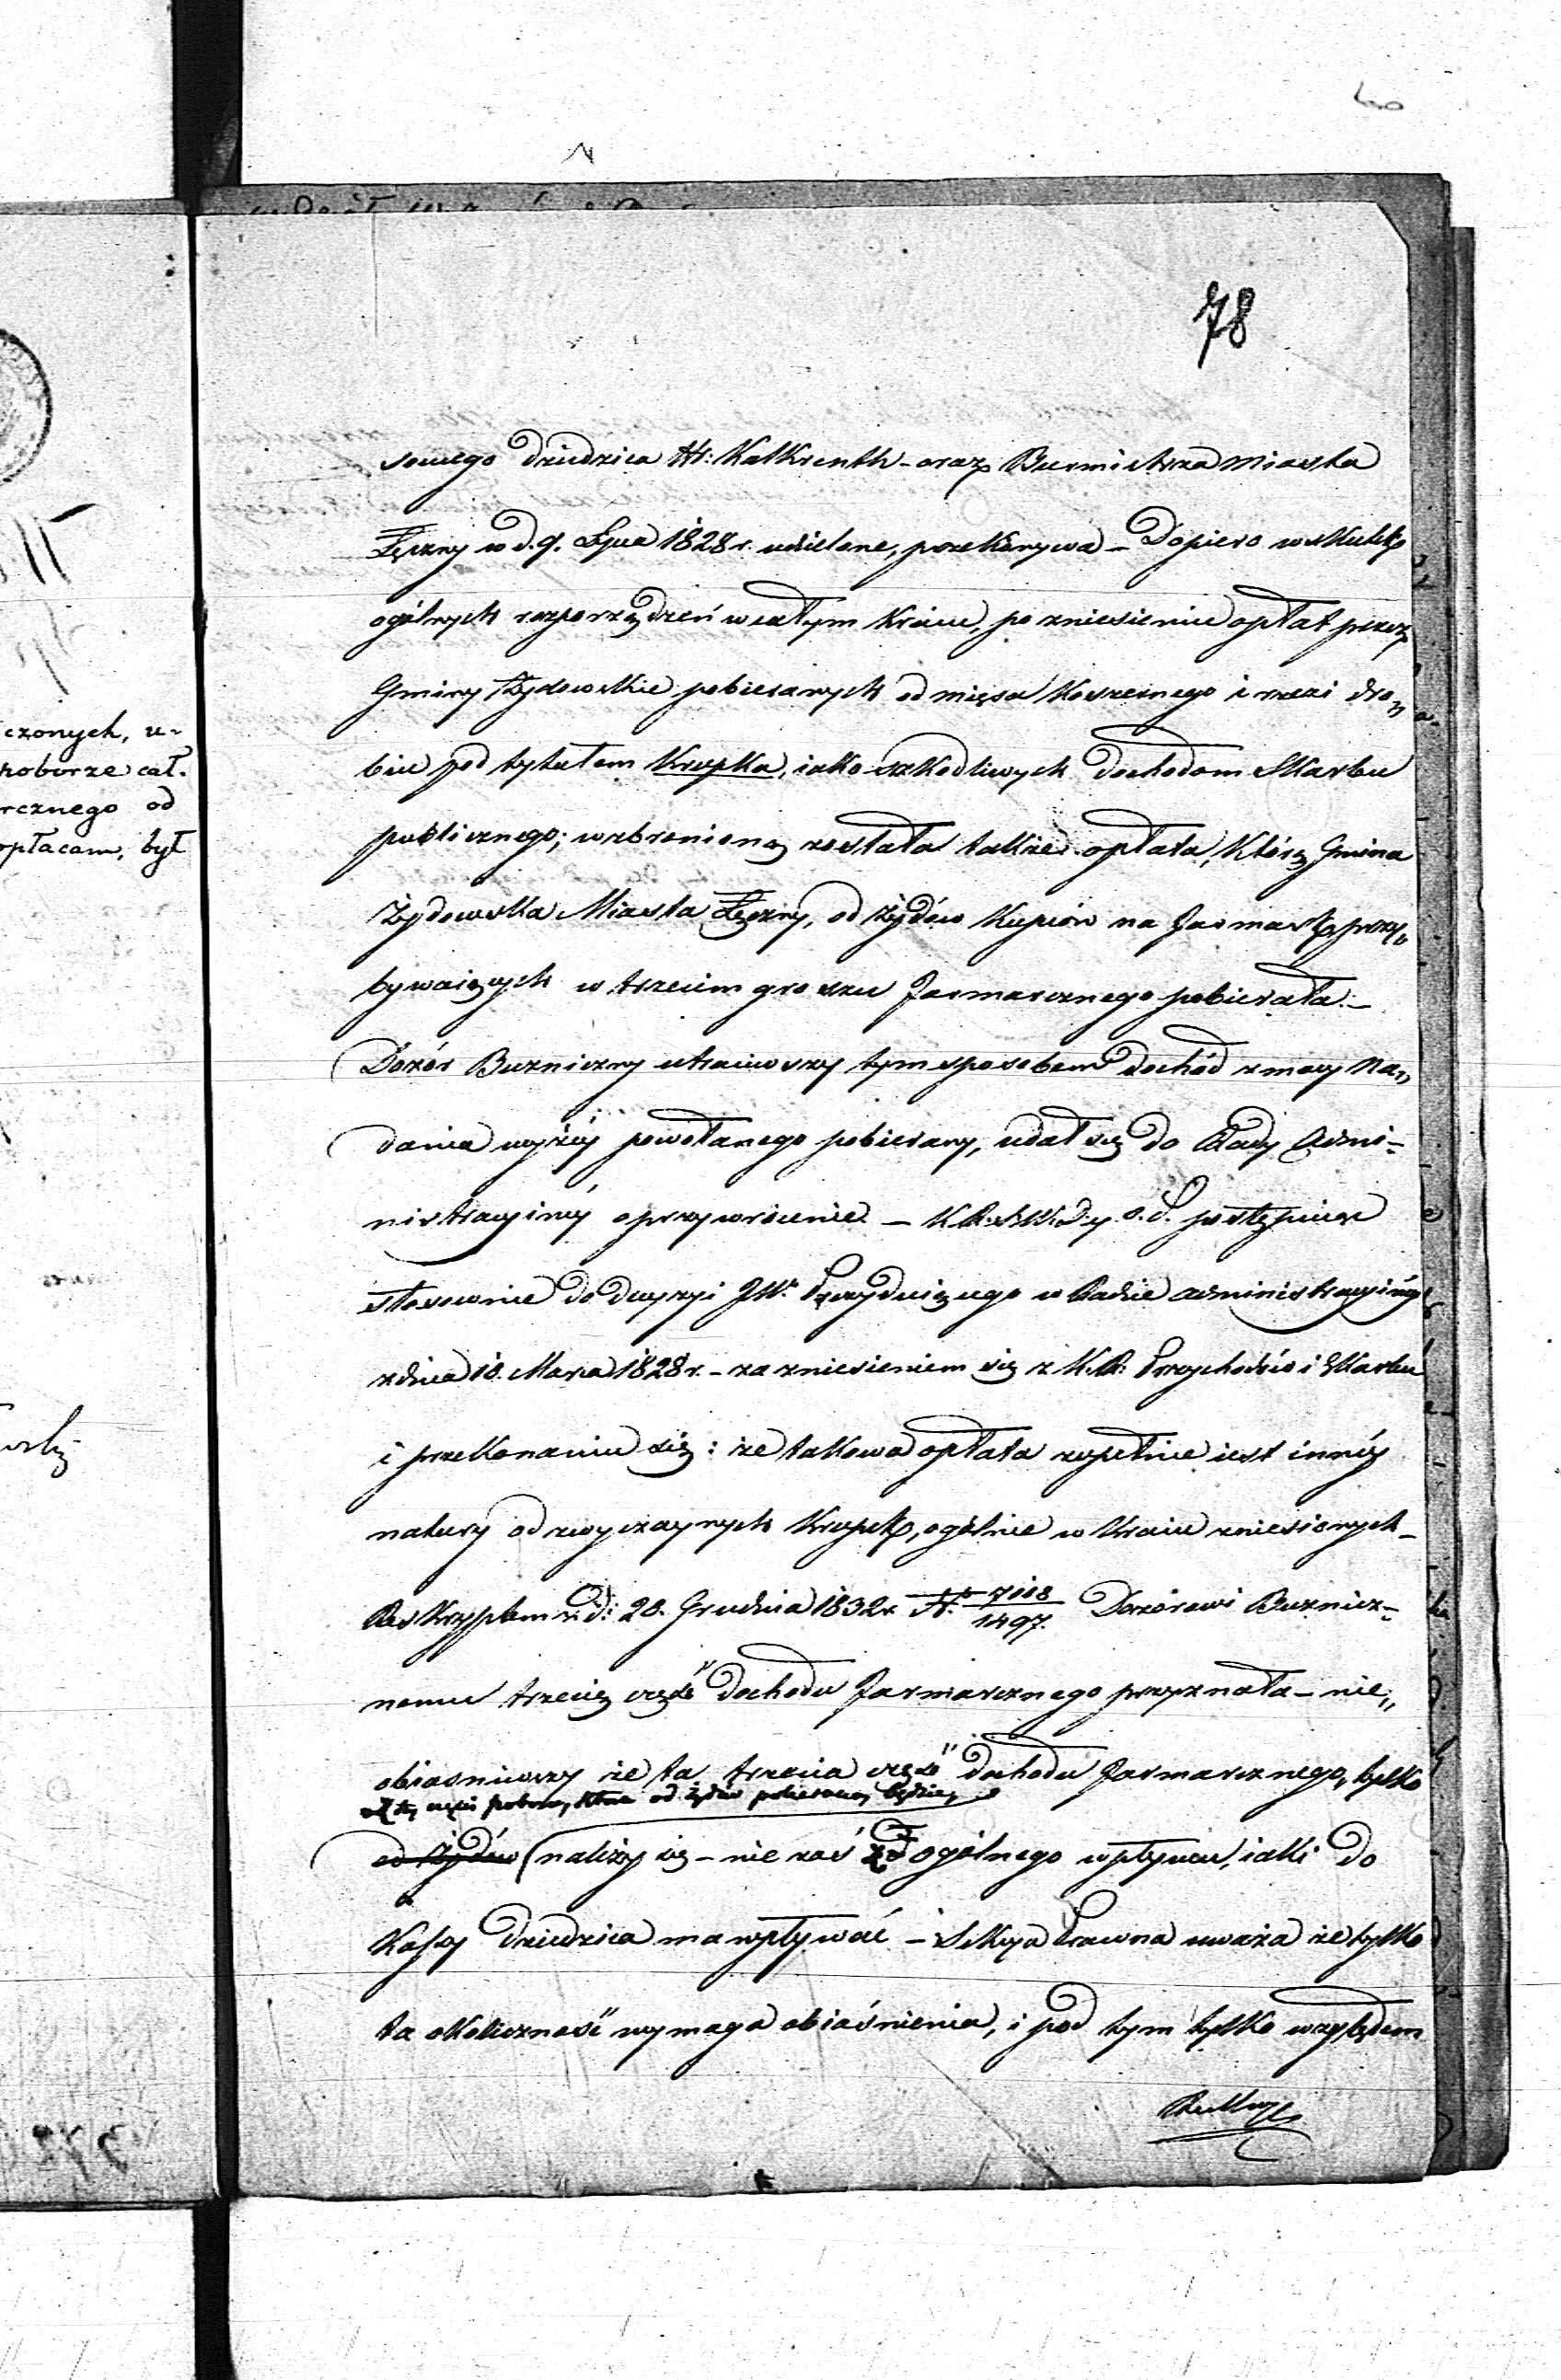 78
czonych, u-
poborze cał.
rcznego od
opłacam, był
sowego Dziedzica Hr: Kalkrenth - oraz Burmistrza Miasta
Łęczny w d. 9. Lipca 1828 r. udzielone, przekonywa - Dopiero w skutek
ogólnych rozporządzeń w całym Kraiu, po zniesieniu opłat przez
Gminy Żydowskie pobieranych od mięsa Koszernego i rzezi dro„
biu pod tytułem Krupka, iako szkodliwych dochodom Skarbu
publicznego; wzbronioną została także opłata, którą Gmina
Żydowska Miasta Łęczny, od Żydów Kupców na Jarmarki przy„
bywaiących w trzecim groszu Jarmarcznego pobierała. -
Dozór Bużniczny utraciwszy tym sposobem dochód z mocy Na„
dania wyżéy powołanego pobierany, udał się do Władzy Admi-
nistracyinéy o przywrócenie. - K. R. S. W. D. y O. P. postępuiąc
stosownie do decyzyi JW. Prezyduiącego w Radzie Administracyinéy
z dnia 10. Marca 1828 r. - za zniesieniem się z K. R. Przychodów i Skarbu
i przekonaniu się: że takowa opłata zupełnie iest innéy
natury od zwyczaynych Krupek, ogólnie w Kraiu zniesionych -
Reskryptem z d: 20. Grudnia 1832 r. N. 7118/1497. Dozorowi Bużnicz-
nemu trzecią część dochodu Jarmarcznego przyznała - nie„
obiasniwszy że ta trzecia część dochodu Jarmarcznego, tylko
z téy części poboru, która od żydów pobieraną będzie,
od Żydów należy się - nie zaś z ogólnego wpływu, iaki do
Kassy Dziedzica ma wpływać - Sekcya Prawna uważa że tylko
ta okoliczność wymaga obiaśnienia, i pod tym tylko względem